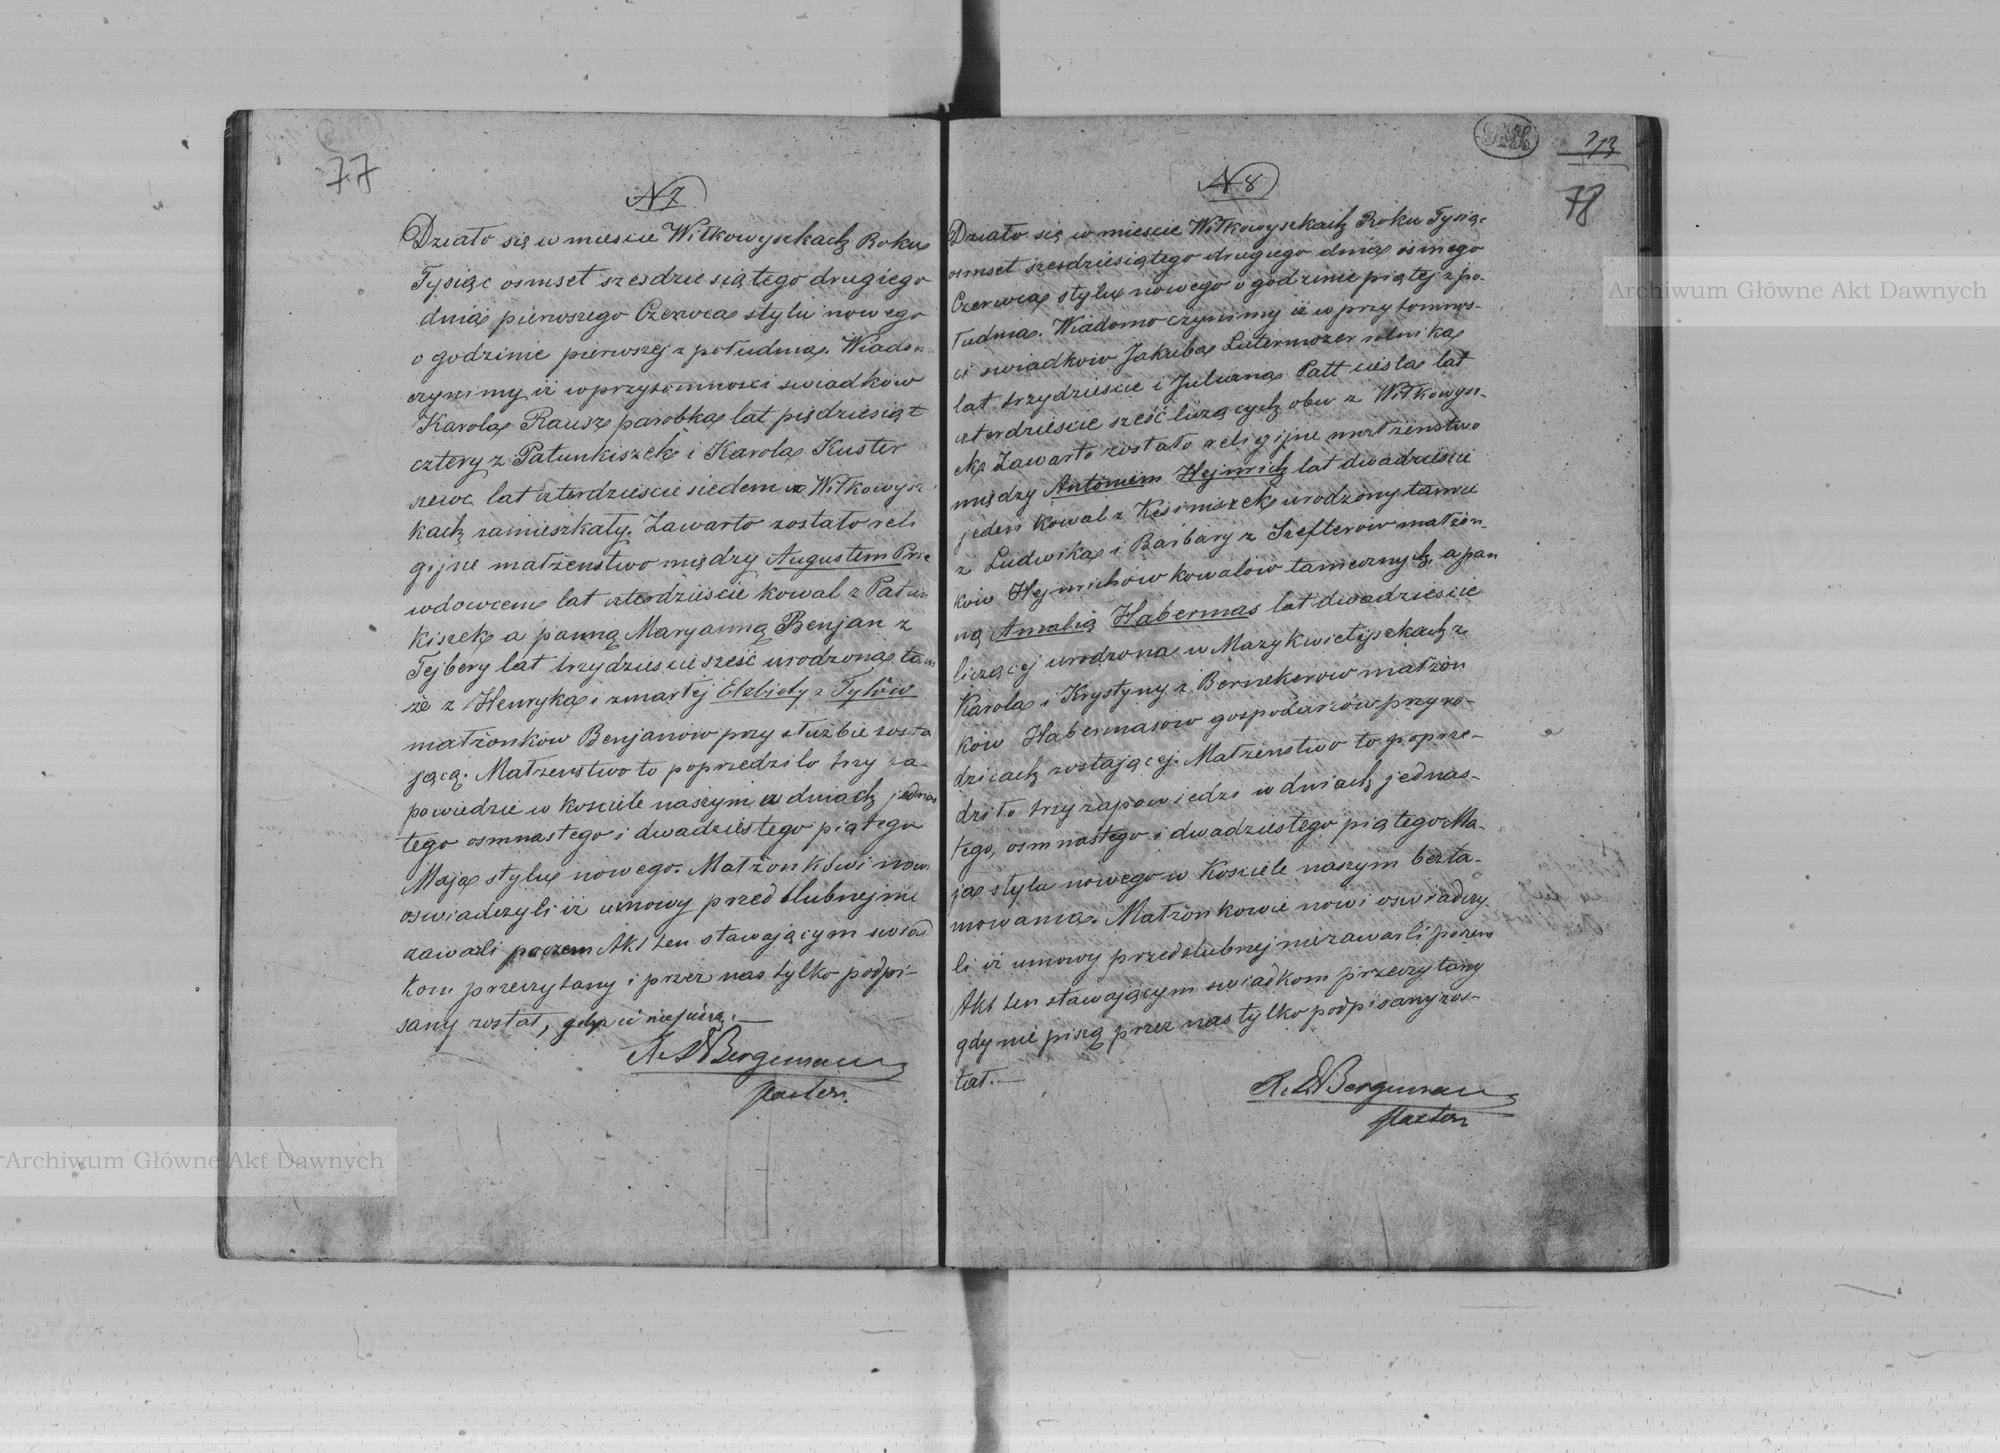 77
N 7
Działo się w miescie Wiłkowyszkach Roku
Tysiąc osmset szesdziesiątego drugiego
dnia pierwszego Czerwca stylu nowego
o godzinie pierwszej z południa. Wiadom
czynimy iż w przytomnosci swiadków
Karola Rausz parobka lat pięдziesiąt
cztery z Patunkiszek i Karola Kuster
szewc lat czterdziescie siedem w Wiłkowysz
kach zamieszkały. Zawarto zostało reli
gijne małżenstwo między Augustem
wdowcem lat czterdziescie kowal z Patun
kiszek a panną Maryanną Benjan z
Tejbery lat trzydziescie szesć urodzona tam
że z Henryka i zmarłej Elzbiety z Tylów
małżonków Benjanów przy służbie zosta
jącą. Małzenstwo to poprzedziło trzy za-
powiedzie w kosciele naszym w dniach jednas
tego osmnastego i dwadziestego piątego
Maja stylu nowego. Małżonkówi nowi
oswiadczyli iż umowy przed slubnej nie
zawarli poczem Akt ten stawającym swiad
kom przeczytany i przez nas tylko podpi-
sany został, gdyz ci nie piszą.—
Bergmann
Pastor.
213
78
N 8
Działo się w miescie Wiłkowyszkach Roku Tysiąc
osmset szesdziesiątego drugiego dnia osmego
Czerwca stylu nowego o godzinie piątej z po-
łudnia. Wiadomo czynimy iż w przytomnos-
ci swiadków Jakuba Lutermozer rolnika
lat trzydziescie i Juliana Patt ciesla lat
czterdziescie szesć liczących obu z Wiłkowysz-
ek Zawarto zostało religijne małżenstwo
między Antonim Hejnrich lat dwadziescie
jeden kowal z Kisiniszek urodzony tamże
z Ludwika i Barbary z Szefterów małżon-
ków Hejnrichów kowalów tamecznych, a pan
ną Amalią Habermas lat dwadziescie
liczącej urodzona w Mazykwietyszkach z
Karola i Krystyny z Bernekerów małżon
ków Habermasów gospodarzów przy ro-
dzicach zostającej. Małzenstwo to poprze-
dziło trzy zapowiedzi w dniach jednas-
tego, osmnastego i dwadziestego piątego Ma-
ja stylu nowego w Kosciele naszym bez ta-
mowania. Małżonkowie nowi oswiadczy-
li iż umowy przedslubnej niezawarli poczem
Akt ten stawającym swiadkom przeczytany
gdy nie piszą przez nas tylko podpisany zos-
tał.—
Bergmann
Pastor
Archiwum Główne Akt Dawnych
Archiwum Główne Akt Dawnych